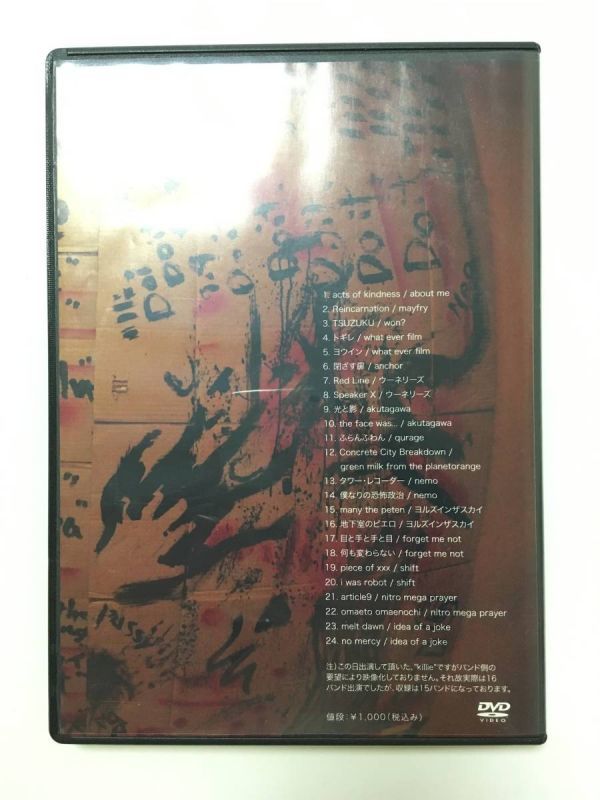 Do it
Do it
Do it
Do it
1. acts of kindness / about me
2. Reincarnation / mayfry
3. TSUZUKU / won?
4. トギレ / what ever film
5. ヨウイン / what ever film
6. 閉ざす扉 / anchor
7. Red Line / ウーネリーズ
8. Speaker X / ウーネリーズ
9. 光と影 / akutagawa
10. the face was... / akutagawa
11. ふらんふわん / qurage
12. Concrete City Breakdown /
green milk from the planetorange
13. タワー・レコーダー / nemo
14. 僕なりの恐怖政治 / nemo
15. many the peten / ヨルズインザスカイ
16. 地下室のピエロ / ヨルズインザスカイ
17. 目と手と手と目 / forget me not
18. 何も変わらない / forget me not
19. piece of xxx / shift
20. i was robot / shift
21. article9 / nitro mega prayer
22. omaeto omaenochi / nitro mega prayer
23. melt dawn / idea of a joke
24. no mercy / idea of a joke
注)この日出演して頂いた、"killie"ですがバンド側の
要望により映像化しておりません。それ故実際は16
バンド出演でしたが、収録は15バンドになっております。
値段：¥1,000(税込み)
DVD
VIDEO